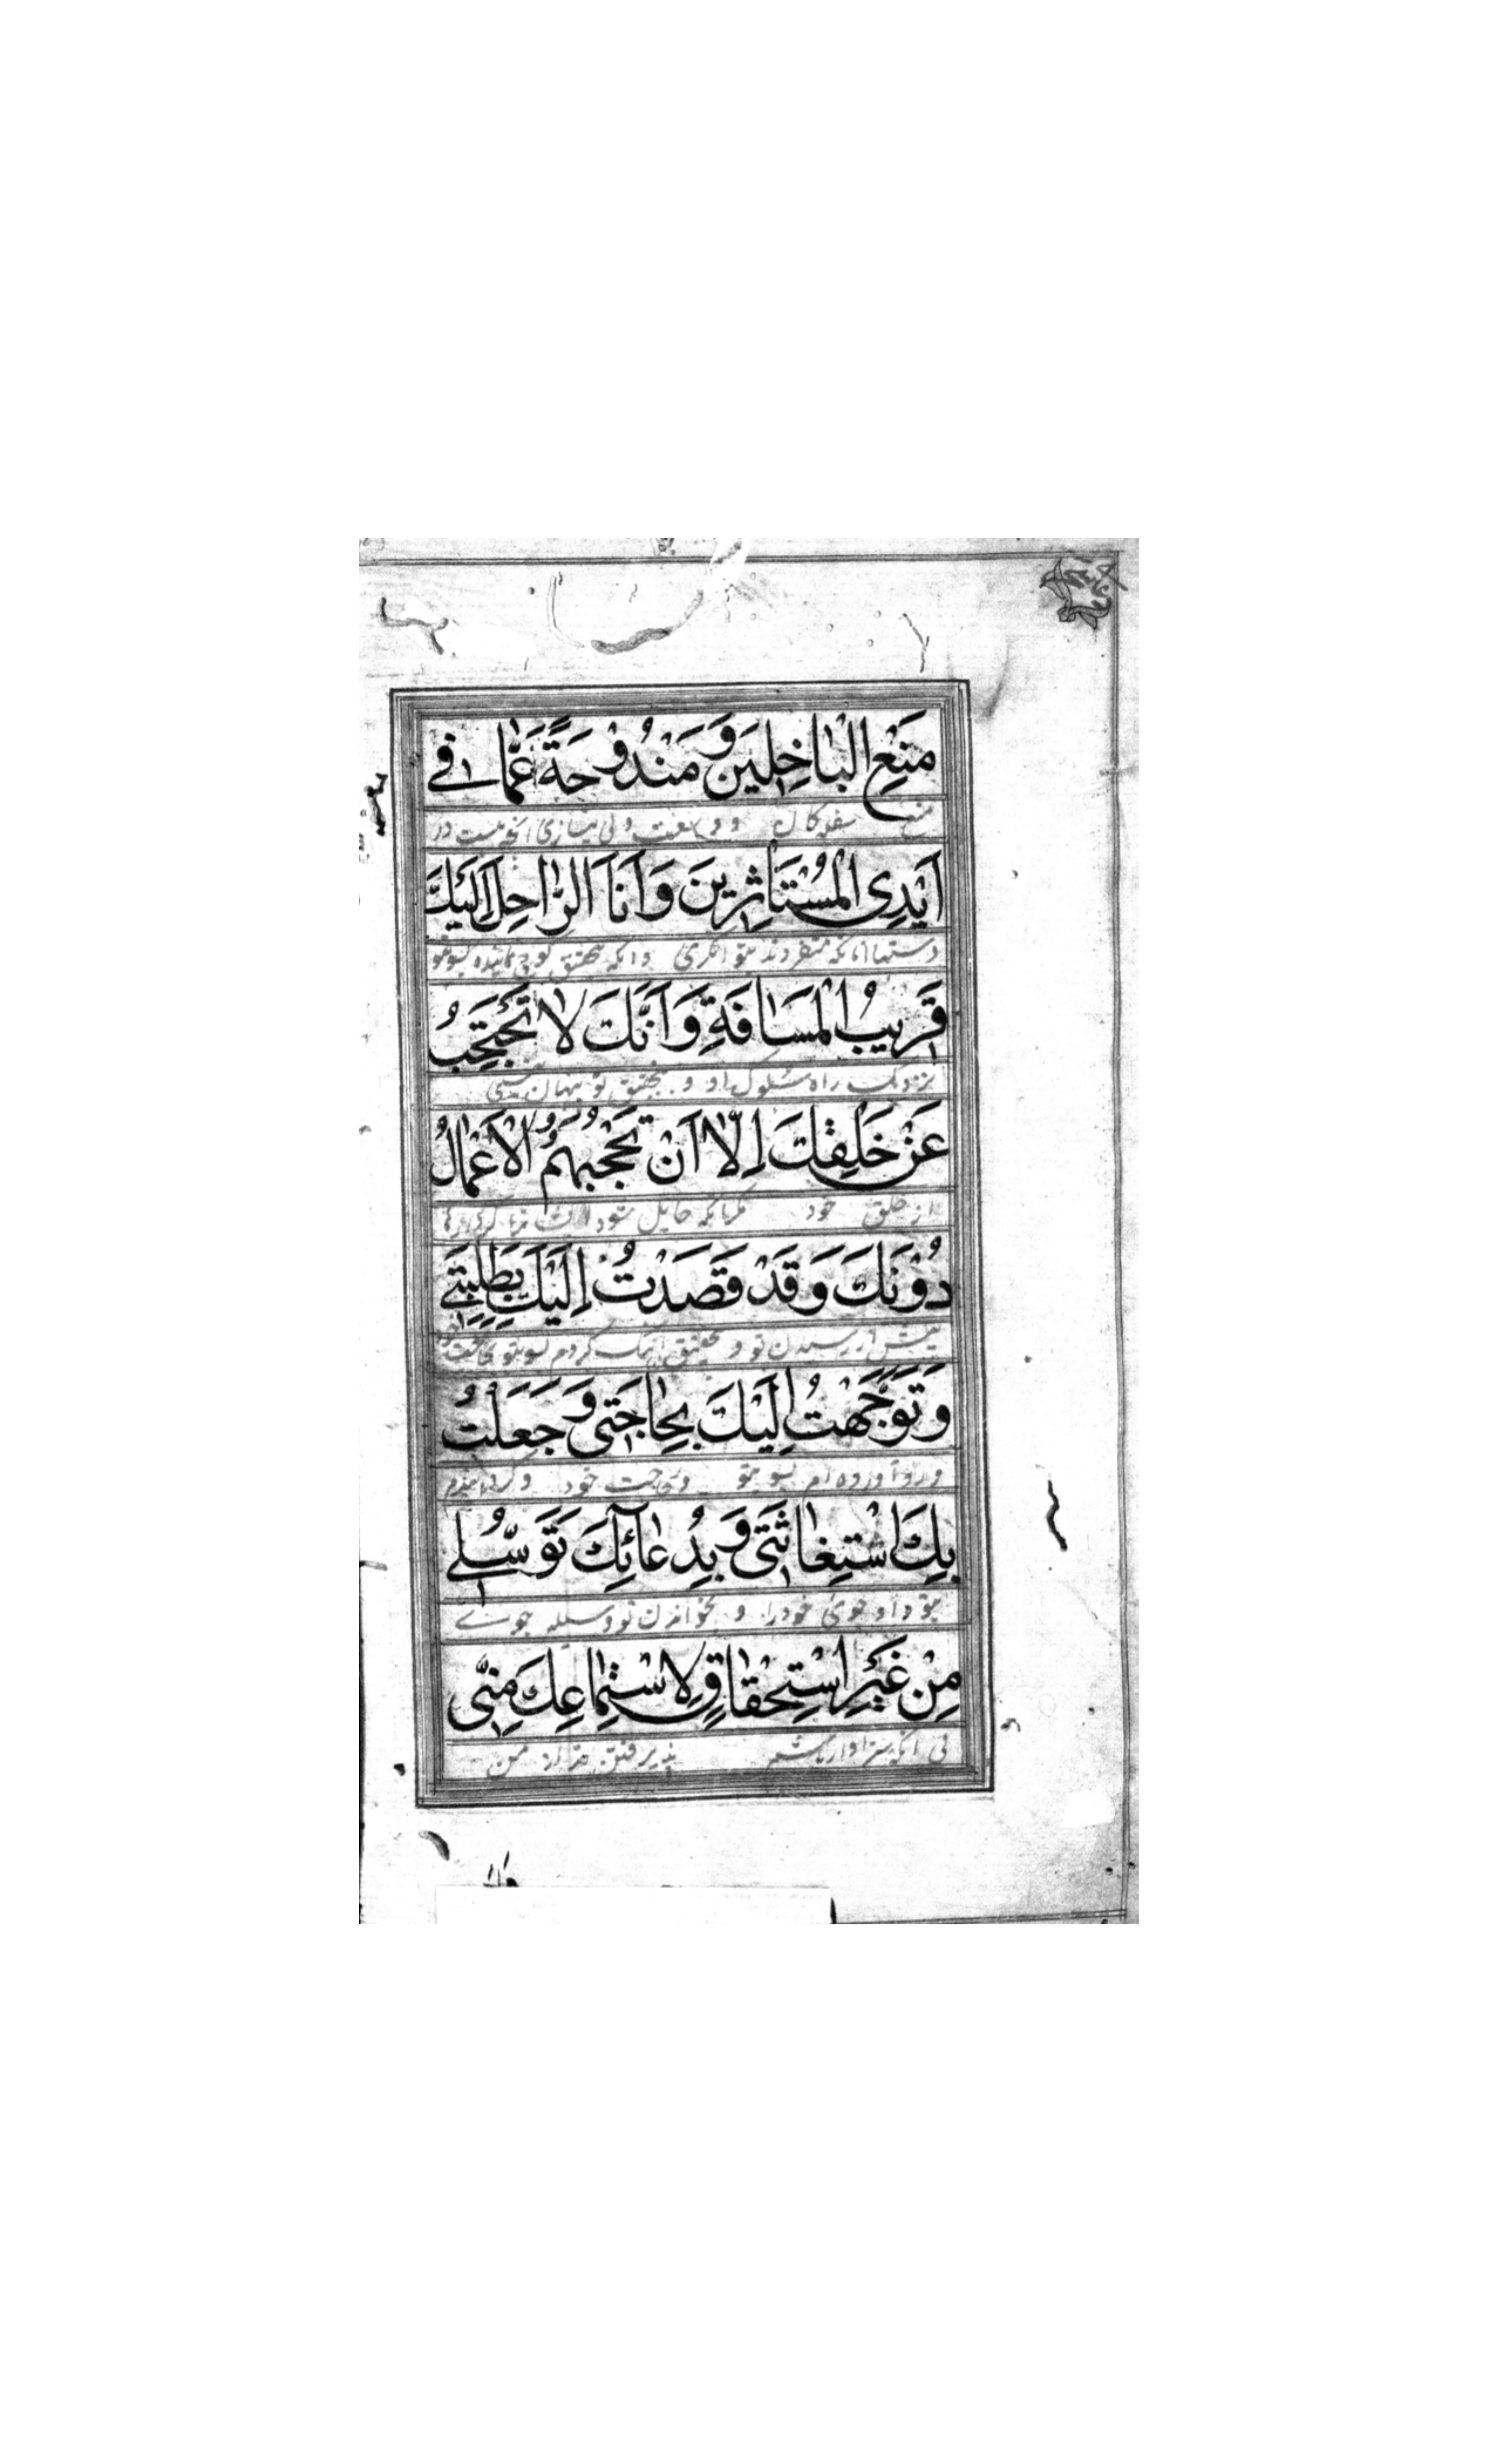 مَنْعِ الْبَاخِلِينَ وَ مَنْدُوْحَةً عَمَّا فِي
منع سفلگان و وسعت و بی نیازی آنچه هست در
اَيْدِي الْمُسْتَاثِرِينَ وَ اَنَا الرَّاحِلُ اِلَيْكَ
دستها آنانکه متفردند بتوانگری و آنکه بتحقیق بسوی تو
قَرِيبُ الْمَسَافَةِ وَ اَنَّكَ لَا تَحْتَجِبُ
نزدیک راه سلوک او و بتحقیق تو پنهان
عَنْ خَلْقِكَ اِلَّا اَنْ تَحْجُبَهُمُ الْاَعْمَالُ
از خلق خود مگر آنکه حایل شود
دُوْنَكَ وَ قَدْ قَصَدْتُ اِلَيْكَ بِطَلِبَتِي
پیش از رسیدن تو و بتحقیق آهنگ کردم بسوی تو بحاجت خود
وَ تَوَجَّهْتُ اِلَيْكَ بِحَاجَتِي وَ جَعَلْتُ
و رو آورده ام بسوی تو بحاجت خود و گردانیدم
بِكَ اسْتِغَاثَتِي وَ بِدُعَائِكَ تَوَسُّلِي
بتو داد جوئ خود را و بخواندن تو وسیله جوے
مِنْ غَيْرِ اسْتِحْقَاقٍ لِاسْتِمَاعِكَ مِنِّي
بی آنکه سزاوار باشم پذیرفتن از من